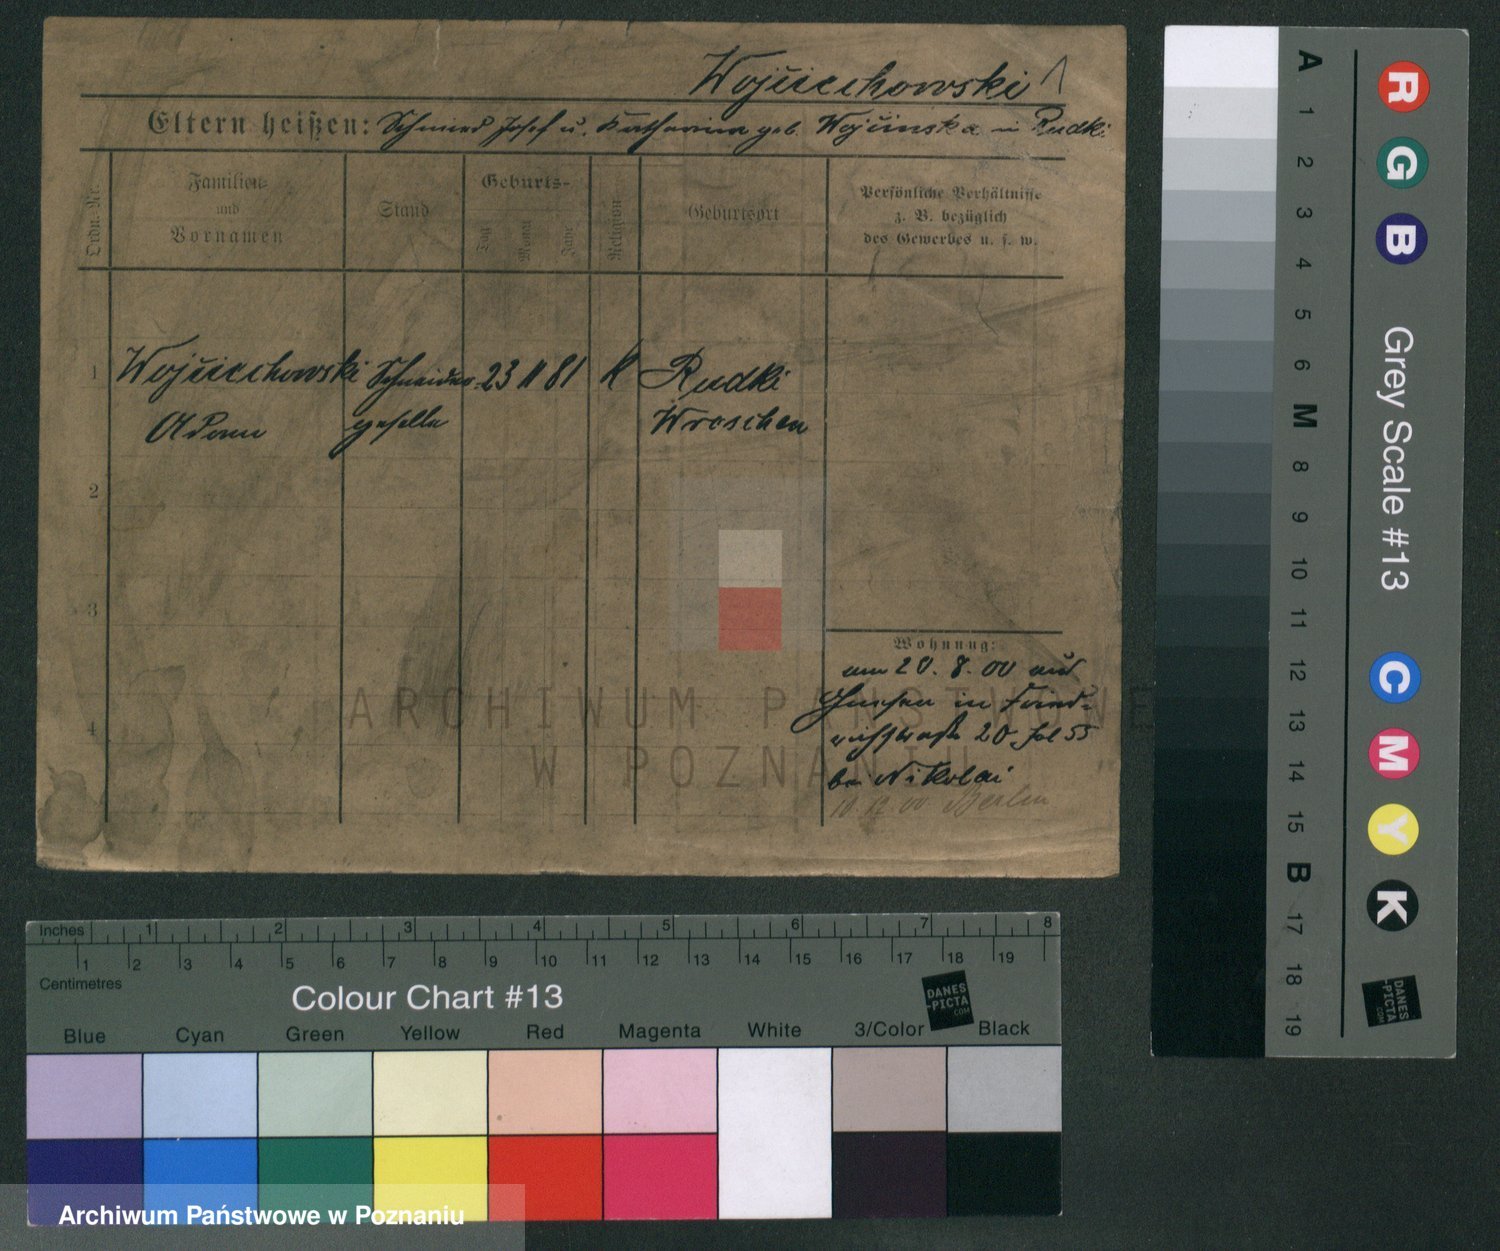 Wojciechowski 1
Eltern heißen: Schmied Josef u. Katharina geb. Wojcinska in Rudki
Ordn. Nr.
Familien-
und
Vornamen
Stand
Geburts-
Tag
Monat
Jahr
Religion
Geburtsort
Persönliche Verhältnisse
z. B. bezüglich
des Gewerbes u. s. w.
1 Wojciechowski Schneider 23 11 81 K Rudki
Adam geselle Wreschen
2
3
4
Wohnung:
am 20. 8. 00 aus
Gnesen in
20. bei
Nikolai
10 12 00 Berlin
ARCHIWUM PAŃSTWOWE
W POZNANIU
Inches 1 2 3 4 5 6 7 8
1 2 3 4 5 6 7 8 9 10 11 12 13 14 15 16 17 18 19
Centimetres
Colour Chart #13
DANES
-PICTA
.COM
Blue Cyan Green Yellow Red Magenta White 3/Color Black
Archiwum Państwowe w Poznaniu
A 1 2 3 4 5 6 M 8 9 10 11 12 13 14 15 B 17 18 19
R G B
Grey Scale #13
C M Y K
DANES
-PICTA
.COM